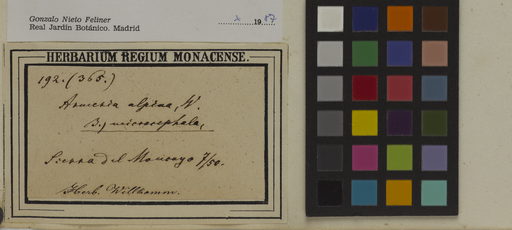 Gonzalo Nieto Feliner
Real Jardín Botánico. Madrid
X 1987
HERBARIUM REGIUM MONACENSE.
192. (365.)
Armeria alpina, W.
B.) microcephala,
Sierra del Moncayo 7/50.
Herb. Willkomm.